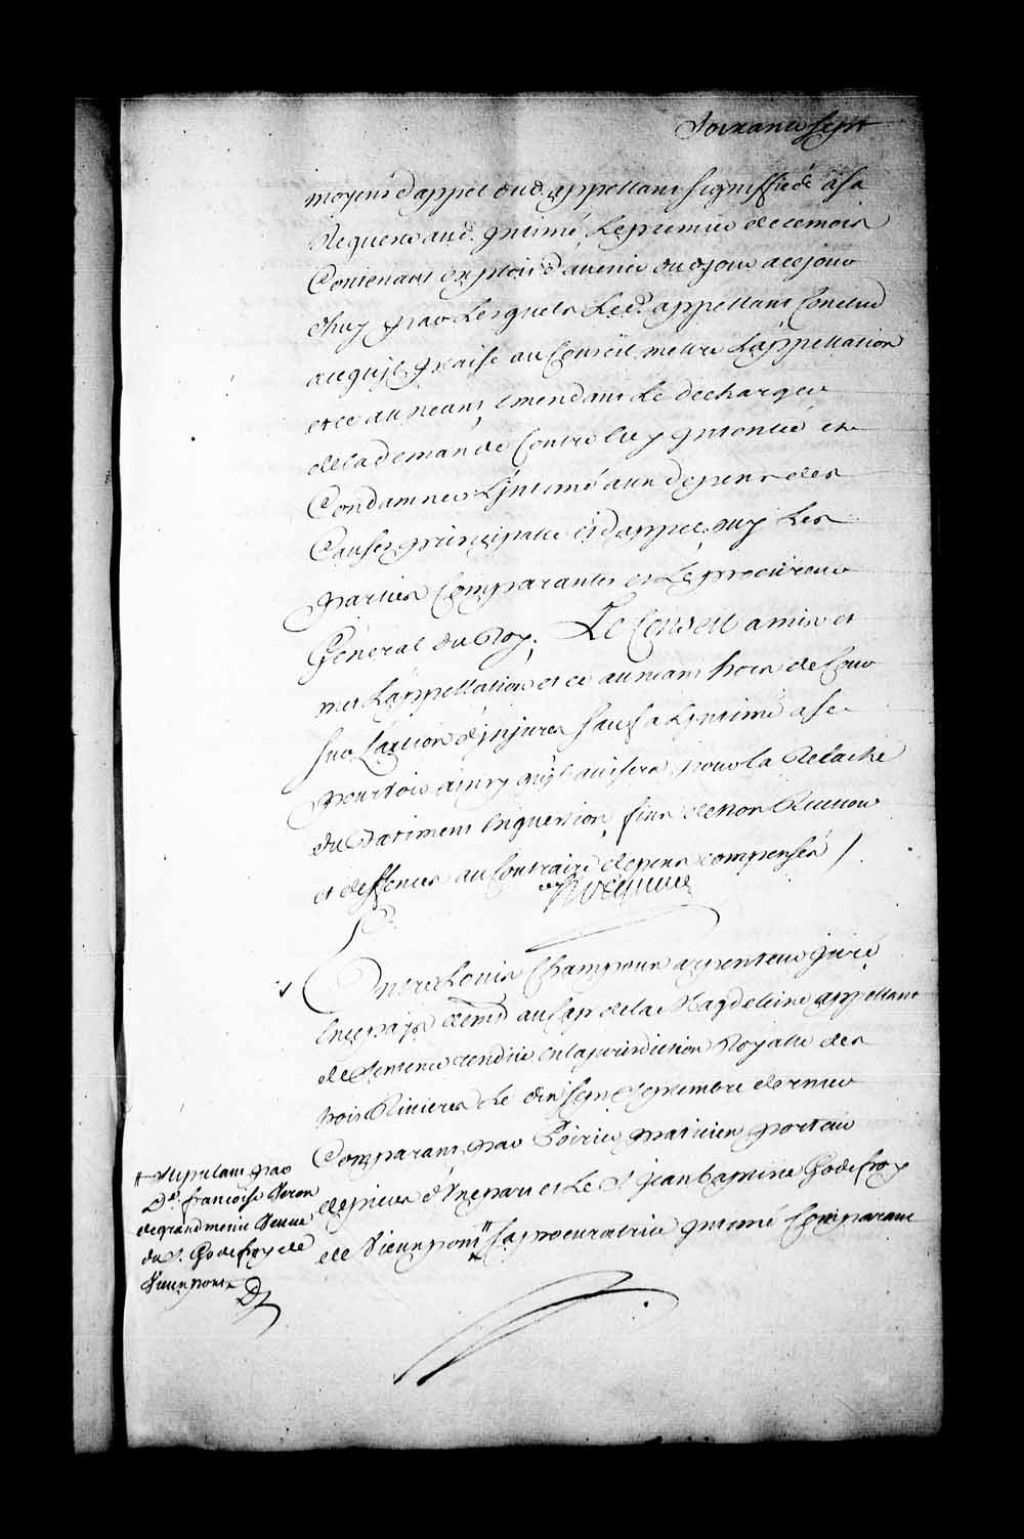 Soixante sept
moyens d'appel dud. appellant signiffiée a sa
Requeste aud. Intimé, Le premier de ce mois
Contenant exploit d'avenir dud. jour a ce jour
d'huy par Lesquels Led. appellant Conclud
a ce qu'il plaise au Conseil mettre L'appellation
et ce au neant, emendant Le decharger
de la demande Contre luy Intentée et
Condamner L'Intimé aux depens des
Causes principalle et d'appel, ouy Les
parties Comparantes et Le procureur
General du Roy; Le Conseil a mis et
met L'appellation et ce au neant hors de Cour
sur L'action d'Injures sauf a L'Intimé a se
pourvoir ainsy qu'il avisera pour la Relache
du Batiment En question, fins de non Recevoir
et deffences au Contraire depens compensés /.
Entre Louis Champoux arpenteur juré
En ce païs demt. au Cap de la Magdeleine appellant
de Sentence rendüe en la jurisdiction Royalle des
trois Rivieres Le dix sept Septembre dernier
Comparant par Poirier praticien porteur
de pieces d'Une part et Le Sr. Jean baptiste Godefroy
de Vieuxpont # sa procuratrice Intimé Comparant
# Stipulant par
De. françoise Veron
de grandmenil Veuve
du S. Godefroy de
Vieuxpont